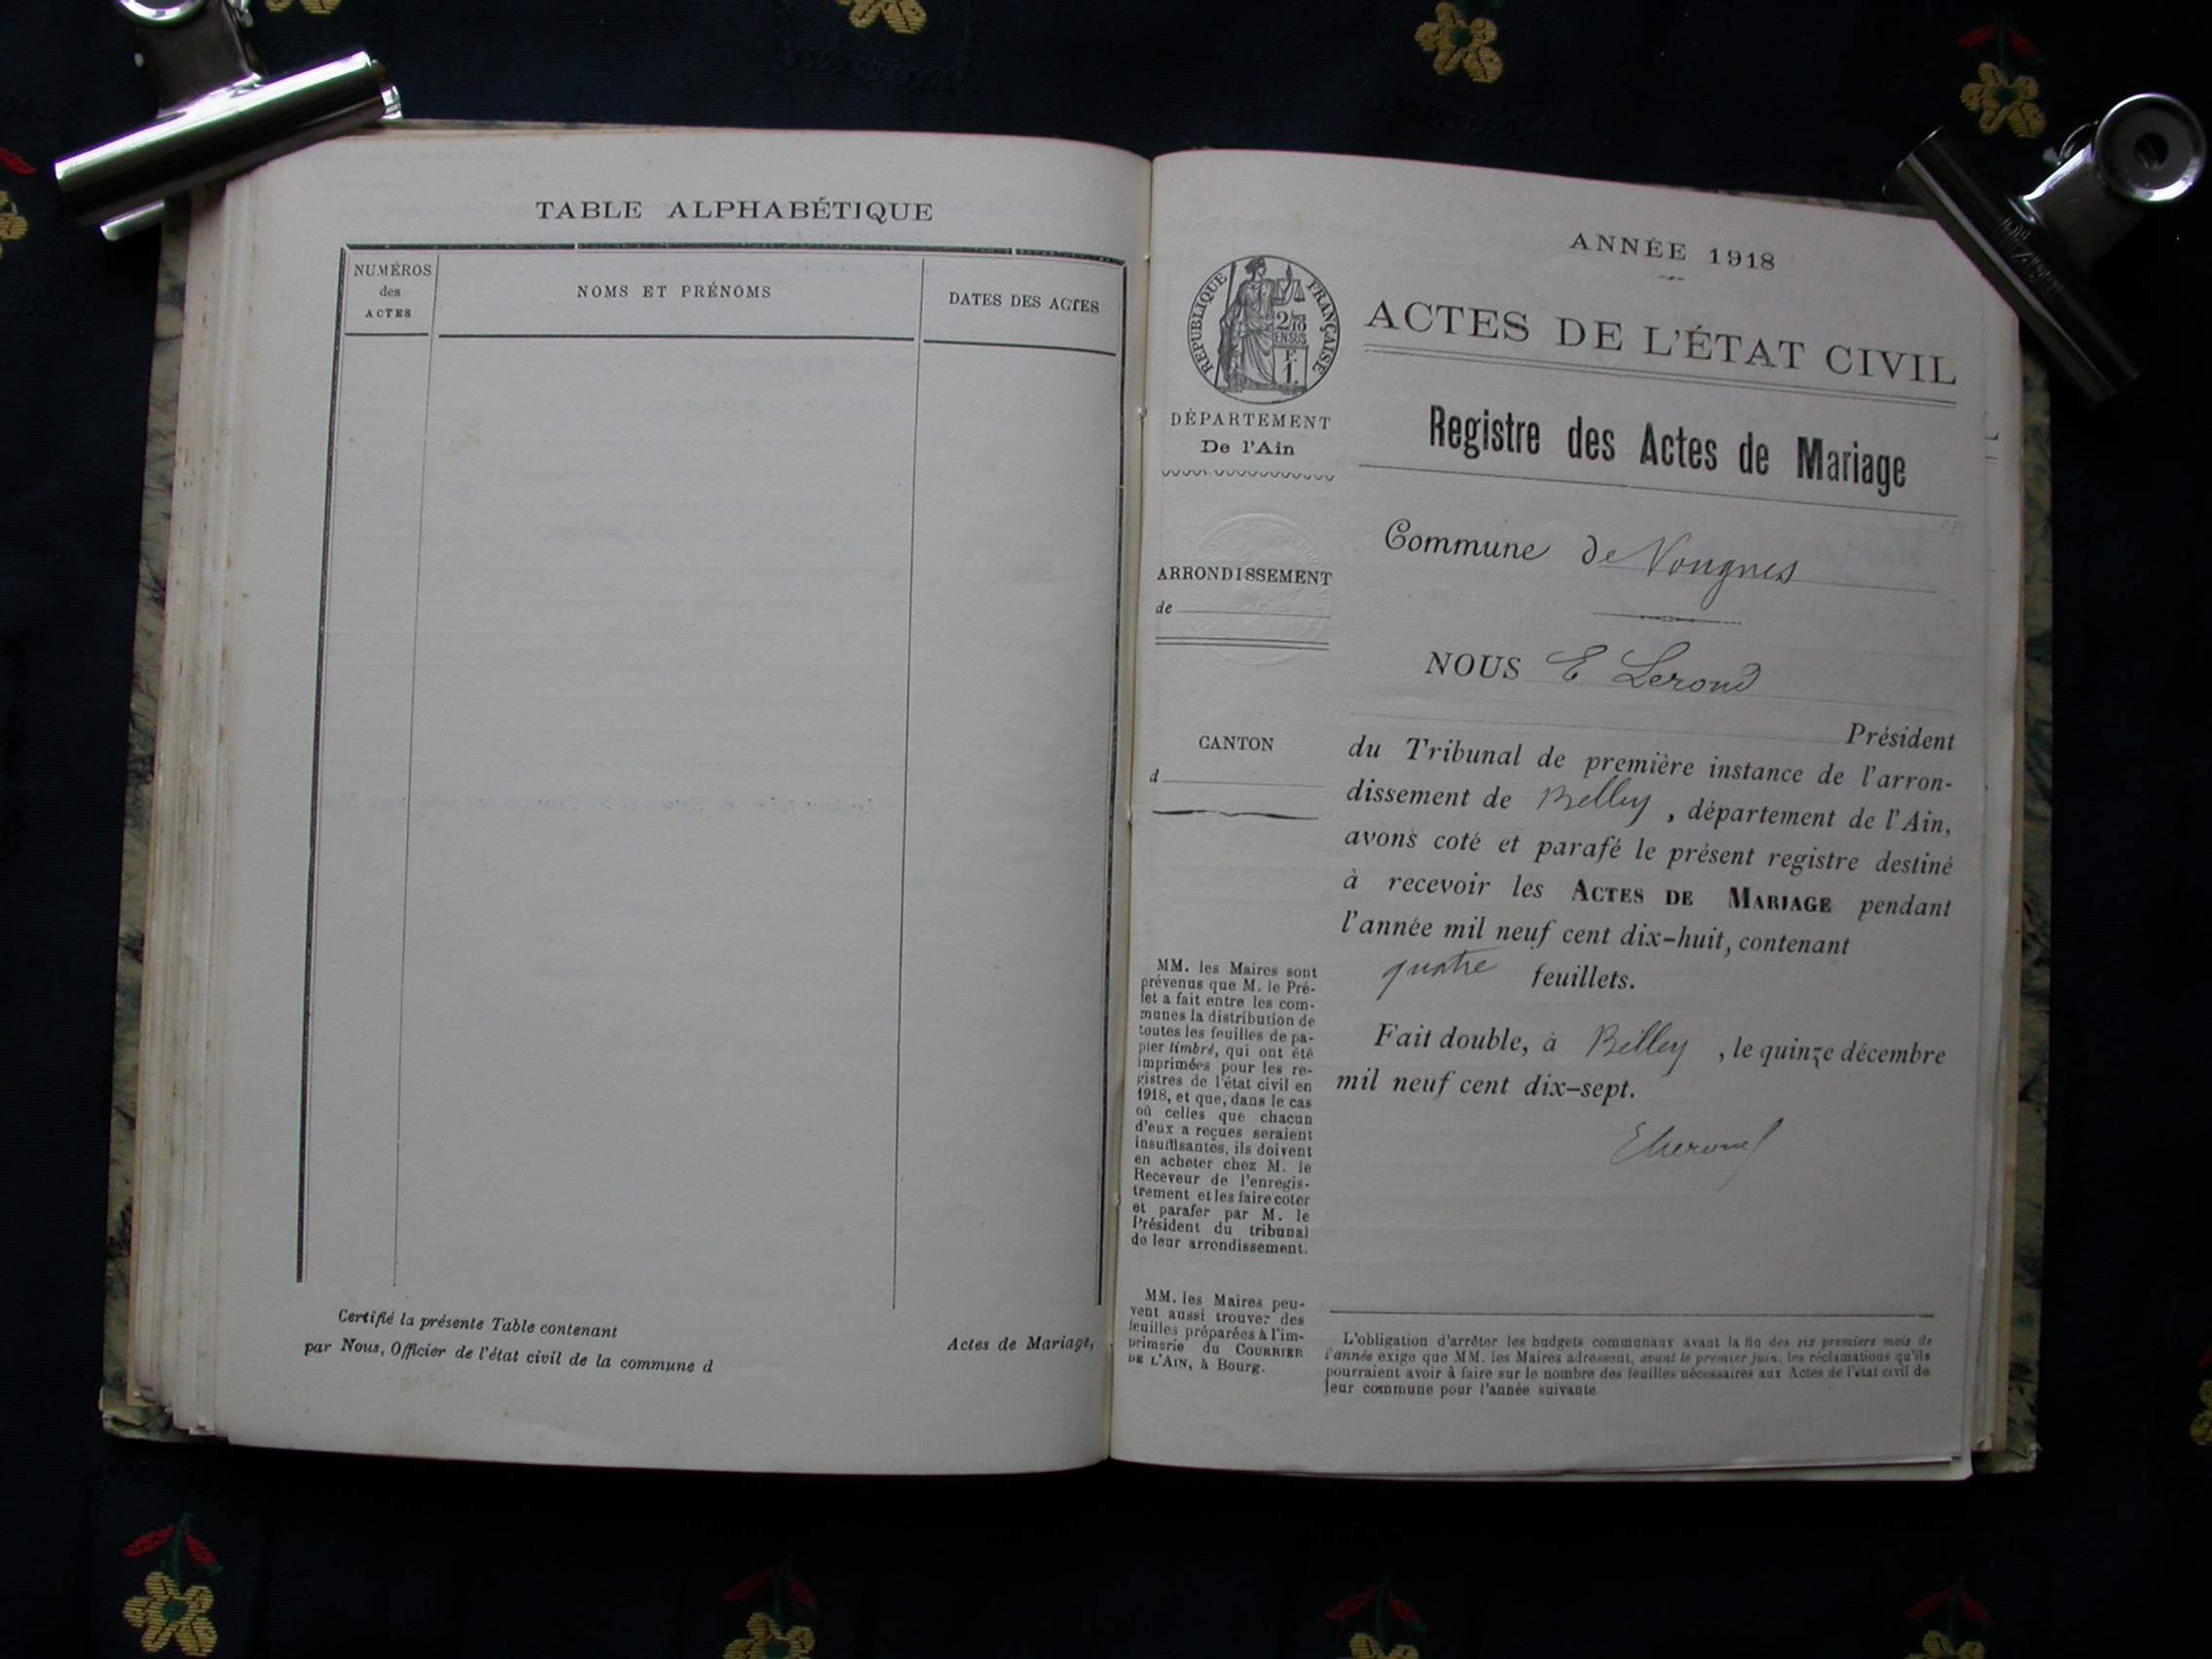 TABLE ALPHABÉTIQUE
NUMÉROS
des
ACTES
NOMS ET PRÉNOMS
DATES DES ACTES
Certifié la présente Table contenant
Actes de Mariage,
par Nous, Officier de l'état civil de la commune d
ANNÉE 1918
RÉPUBLIQUE FRANÇAISE
2/10
EN SUS
F.
1.
ACTES DE L'ÉTAT CIVIL
DÉPARTEMENT
De l'Ain
Registre des Actes de Mariage
Commune de Vongnes
ARRONDISSEMENT
de
NOUS E Lerond
Président
CANTON
d
du Tribunal de première instance de l'arron-
dissement de Belley, département de l'Ain,
avons coté et parafé le présent registre destiné
à recevoir les ACTES DE MARIAGE pendant
l'année mil neuf cent dix-huit, contenant
quatre feuillets.
Fait double, à Belley, le quinze décembre
mil neuf cent dix-sept.
MM. les Maires sont
prévenus que M. le Pré-
fet a fait entre les com-
munes la distribution de
toutes les feuilles de pa-
pier timbré, qui ont été
imprimées pour les re-
gistres de l'état civil en
1918, et que, dans le cas
où celles que chacun
d'eux a reçues seraient
insuffisantes, ils doivent
en acheter chez M. le
Receveur de l'enregis-
trement et les faire coter
et parafer par M. le
Président du tribunal
de leur arrondissement.
MM. les Maires peu-
vent aussi trouver des
feuilles préparées à l'im-
primerie du COURRIER
DE L'AIN, à Bourg.
L'obligation d'arrêter les budgets communaux avant la fin des six premiers mois de
l'année exige que MM. les Maires adressent, avant le premier juin, les réclamations qu'ils
pourraient avoir à faire sur le nombre des feuilles nécessaires aux Actes de l'état civil de
leur commune pour l'année suivante